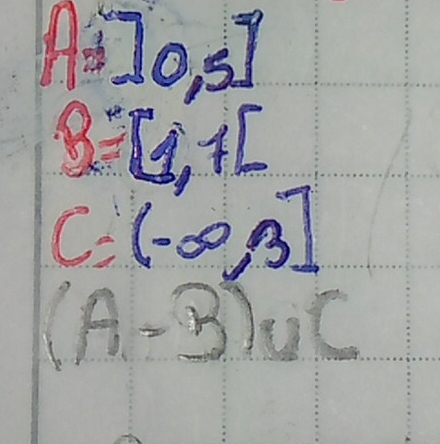 A=]0,5]
B=[1,7[
C=(-∞,3]
(A-B)∪C